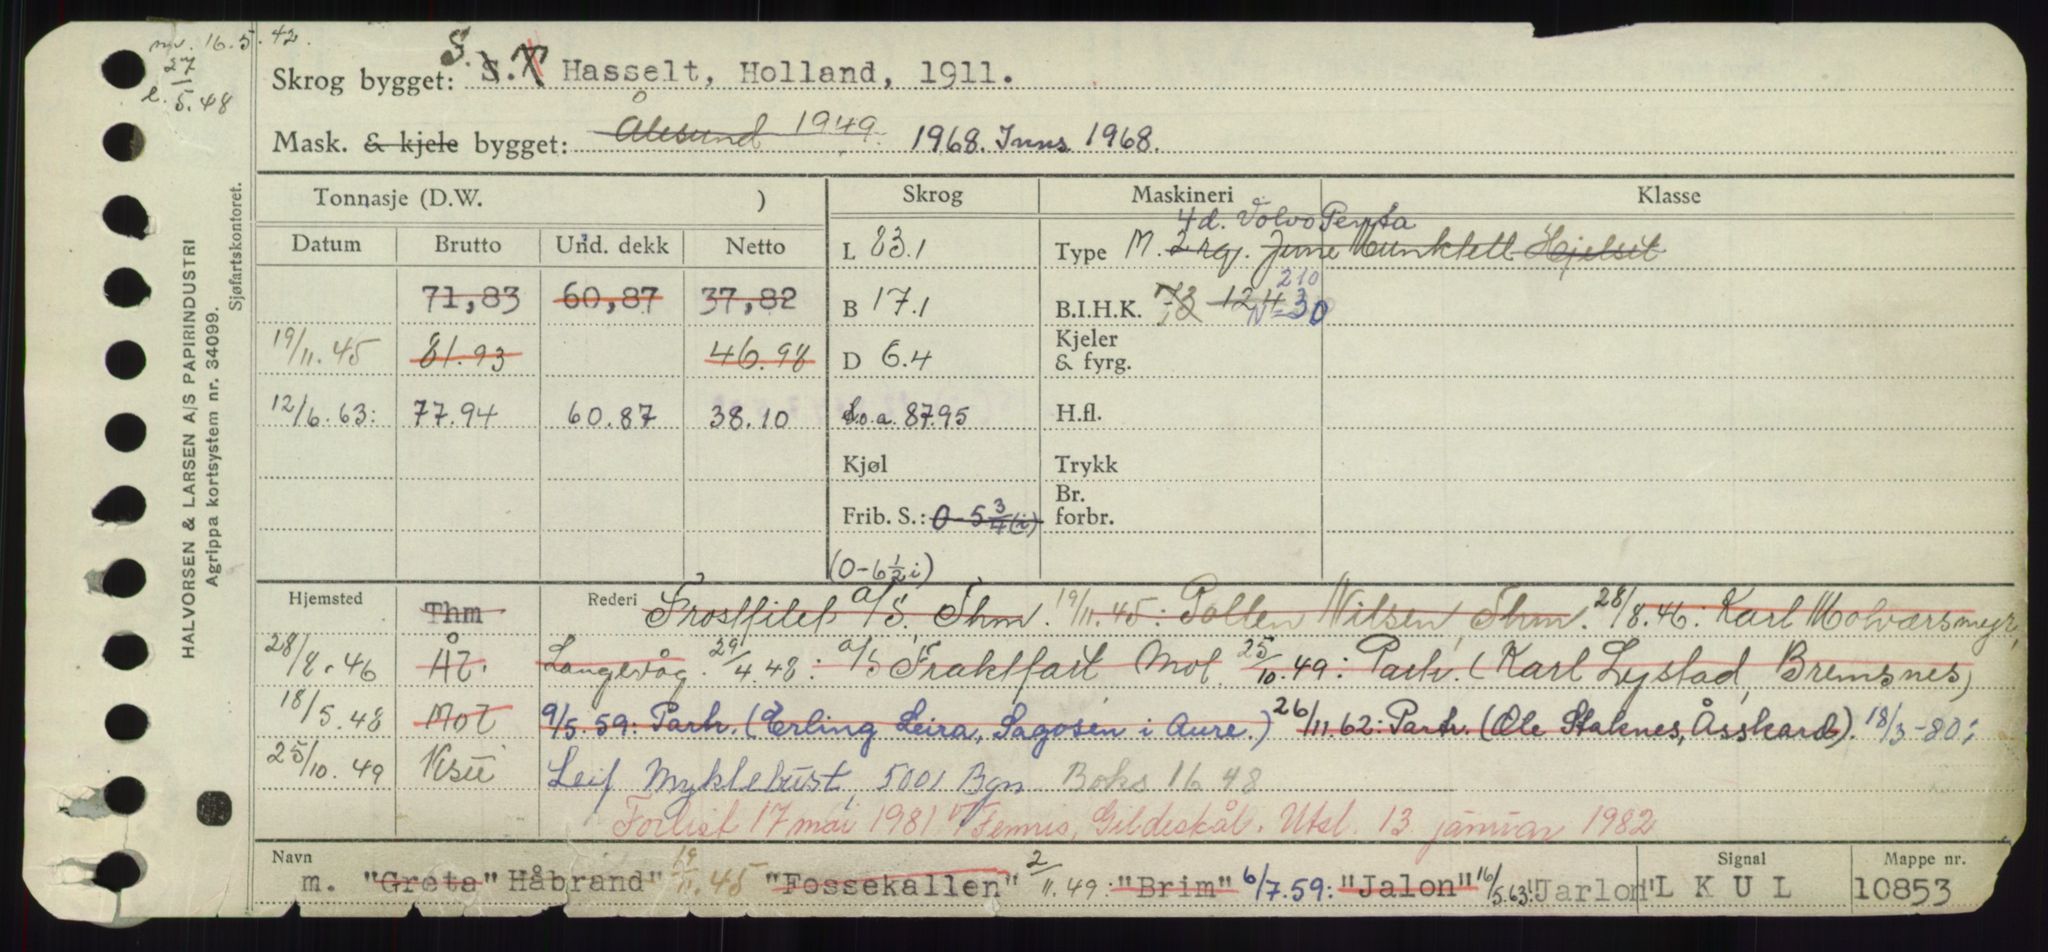 mv. 16.5.42.
27/5.48
Skrog bygget: S. S.T Hasselt, Holland, 1911.
Mask. & kjele bygget: Ålesund 1949. 1968. Inns 1968.
HALVORSEN & LARSEN A/S PAPIRINDUSTRI
Agrippa kortsystem nr. 34099.
Sjøfartskontoret.
Tonnasje (D.W. ) Skrog Maskineri Klasse
Datum Brutto Und. dekk Netto
71,83 60,87 37,82
19/11.45 81.93 46.98
12/6.63: 77.94 60.87 38.10
L 83.1
B 17.1
D 6.4
L.o.a. 87.95
Kjøl
Frib. S.: 0-5 3/4 (i)
(0-6 1/2 i)
4 d. Volvo Penta
Type M. 2 rg. June Munktell Hjelset
210
B.I.H.K. 124 N=30
Kjeler & fyrg.
H.fl.
Trykk
Br. forbr.
Hjemsted Thm Rederi Frostfilet A/S. Thm. 19/11.45: Petter Nilsen, Thm. 28/8.46: Karl Molværsmyr,
28/8.46 Ål. Langevåg. 29/4.48: A/S Fraktfart Mol. 25/10.49: Partr. (Karl Lystad, Bremsnes)
18/5.48 Mol 9/5.59: Partr. (Erling Leira, Sagosen i Aure.) 26/11.62: Partr. (Ole Staknes, Åsskard). 18/3-80:
25/10.49 Ksu Leif Myklebust, 5001 Bgn Boks 1648
Forlist 17 mai 1981 v/ Femris, Gildeskål. Utsl. 13 januar 1982
Navn Signal Mappe nr.
m. "Greta" Håbrand" 19/11.45 "Fossekallen" 2/11.49: "Brim" 6/7.59: "Jalon" 16/5.63: "Jarlon" L K U L 10853